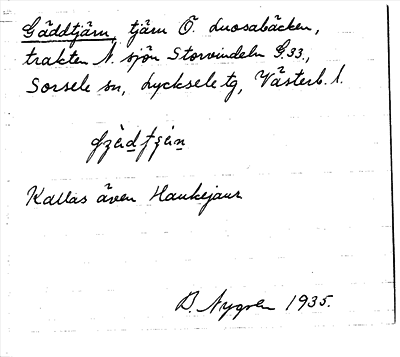 Gäddtjärn, tjärn Ö. Luosabäcken,
trakten N. sjön Storvindeln G.33.,
Sorsele sn, Lycksele tg, Västerb. l.
Kallas även Haukejaur
B. Nygren 1935.